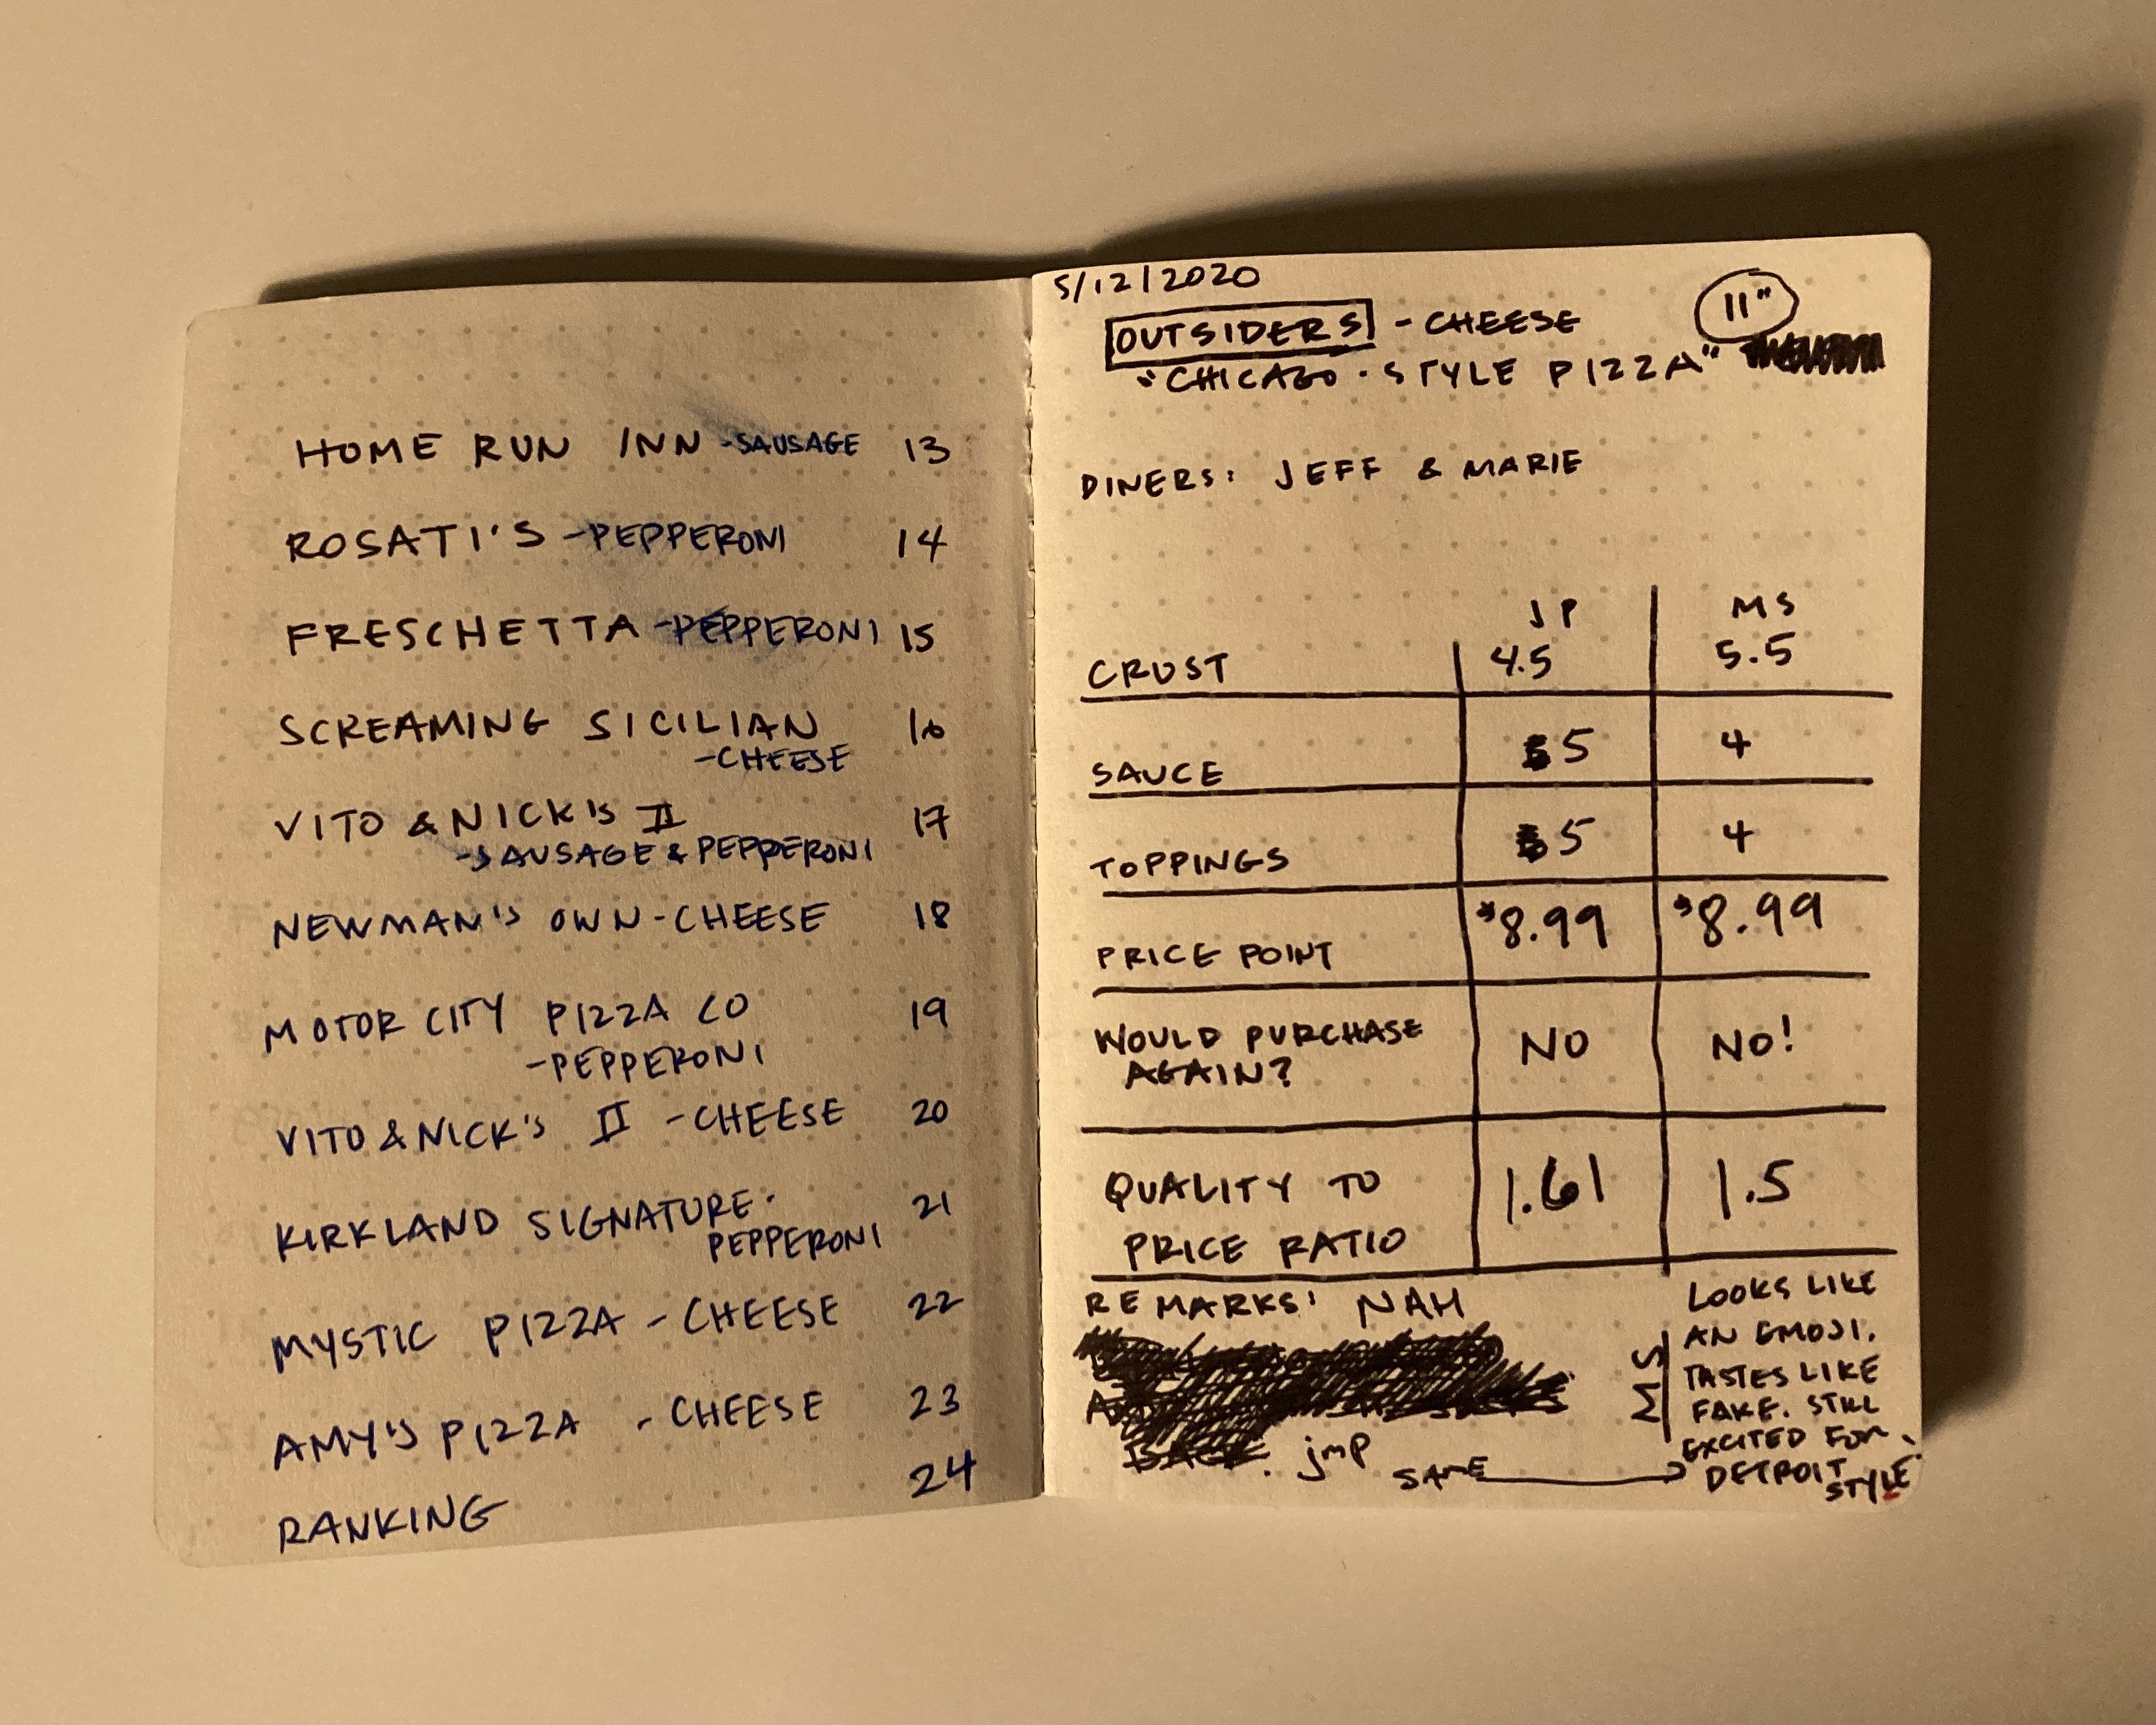 HOME RUN INN -SAUSAGE 13
ROSATI'S -PEPPERONI 14
FRESCHETTA -PEPPERONI 15
SCREAMING SICILIAN 16
-CHEESE
VITO & NICK'S II 17
-SAUSAGE & PEPPERONI
NEWMAN'S OWN-CHEESE 18
MOTOR CITY PIZZA CO 19
-PEPPERONI
VITO & NICK'S II -CHEESE 20
KIRKLAND SIGNATURE- 21
PEPPERONI
MYSTIC PIZZA - CHEESE 22
AMY'S PIZZA - CHEESE 23
RANKING 24
5/12/2020
OUTSIDERS - CHEESE 11"
"CHICAGO-STYLE PIZZA"
DINERS: JEFF & MARIE
JP MS
CRUST 4.5 5.5
SAUCE 5 4
TOPPINGS 5 4
PRICE POINT $8.99 $8.99
WOULD PURCHASE NO NO!
AGAIN?
QUALITY TO 1.61 1.5
PRICE RATIO
REMARKS: NAH
BACK. jmp
SAME
MS
LOOKS LIKE
AN EMOJI.
TASTES LIKE
FAKE. STILL
EXCITED FOR
DETROIT
STYLE